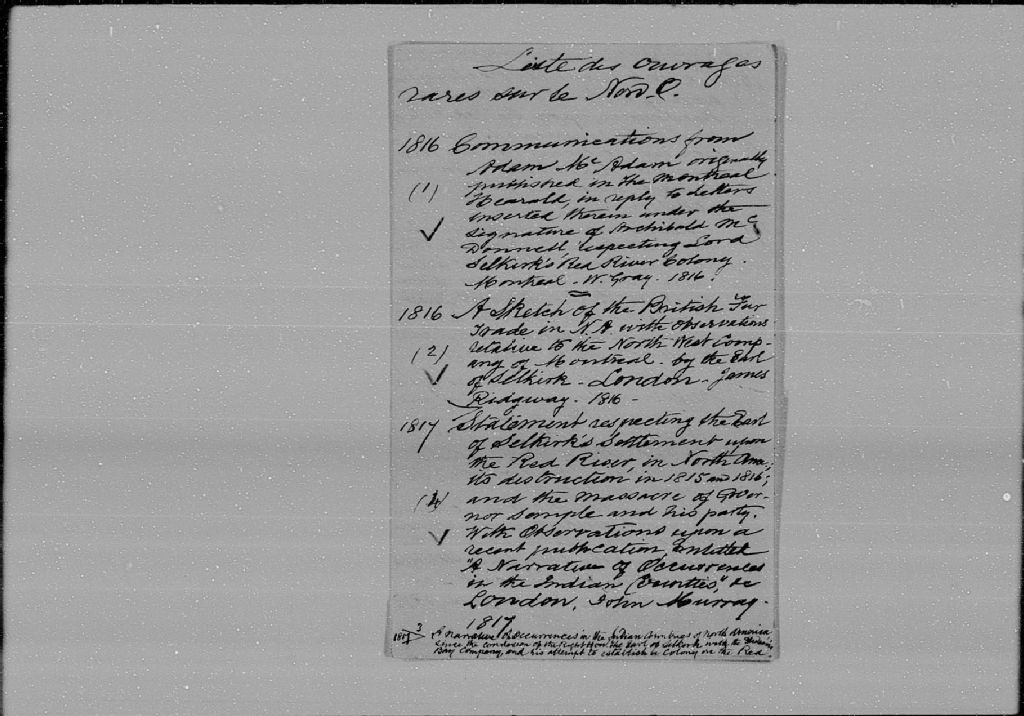 Liste des ouvrages
rares sur le Nord-O.
1816 Communications from
Adam Mc Adam originally
(1) published in the Montreal
Hearald, in reply to letters
inserted therein under the
signature of Archibald Mc
Donnell, respecting Lord
Selkirk's Red River Colony.
Montreal - W. Gray. 1816.
1816 A Sketch of the British Fur
Trade in N.A. with observations
(2) relative to the North West Comp-
any of Montreal - by the Earl
of Selkirk - London - James
Ridgway - 1816 -
1817 Statement respecting the Earl
of Selkirk's Settlement upon
the Red River, in North Ame.;
its destruction in 1815 and 1816;
(4) and the massacre of Gover-
nor Semple and his party.
With Observations upon a
recent publication, entitled
"A Narrative of Occurrences
in the Indian Countries," &c
London, John Murray.
1817
3
1817 A narrative of Occurrences in the Indian Countries of North America
since the connexion of the Right Hon. the Earl of Selkirk with the Hudson's
Bay Company, and his attempt to establish a Colony on the Red